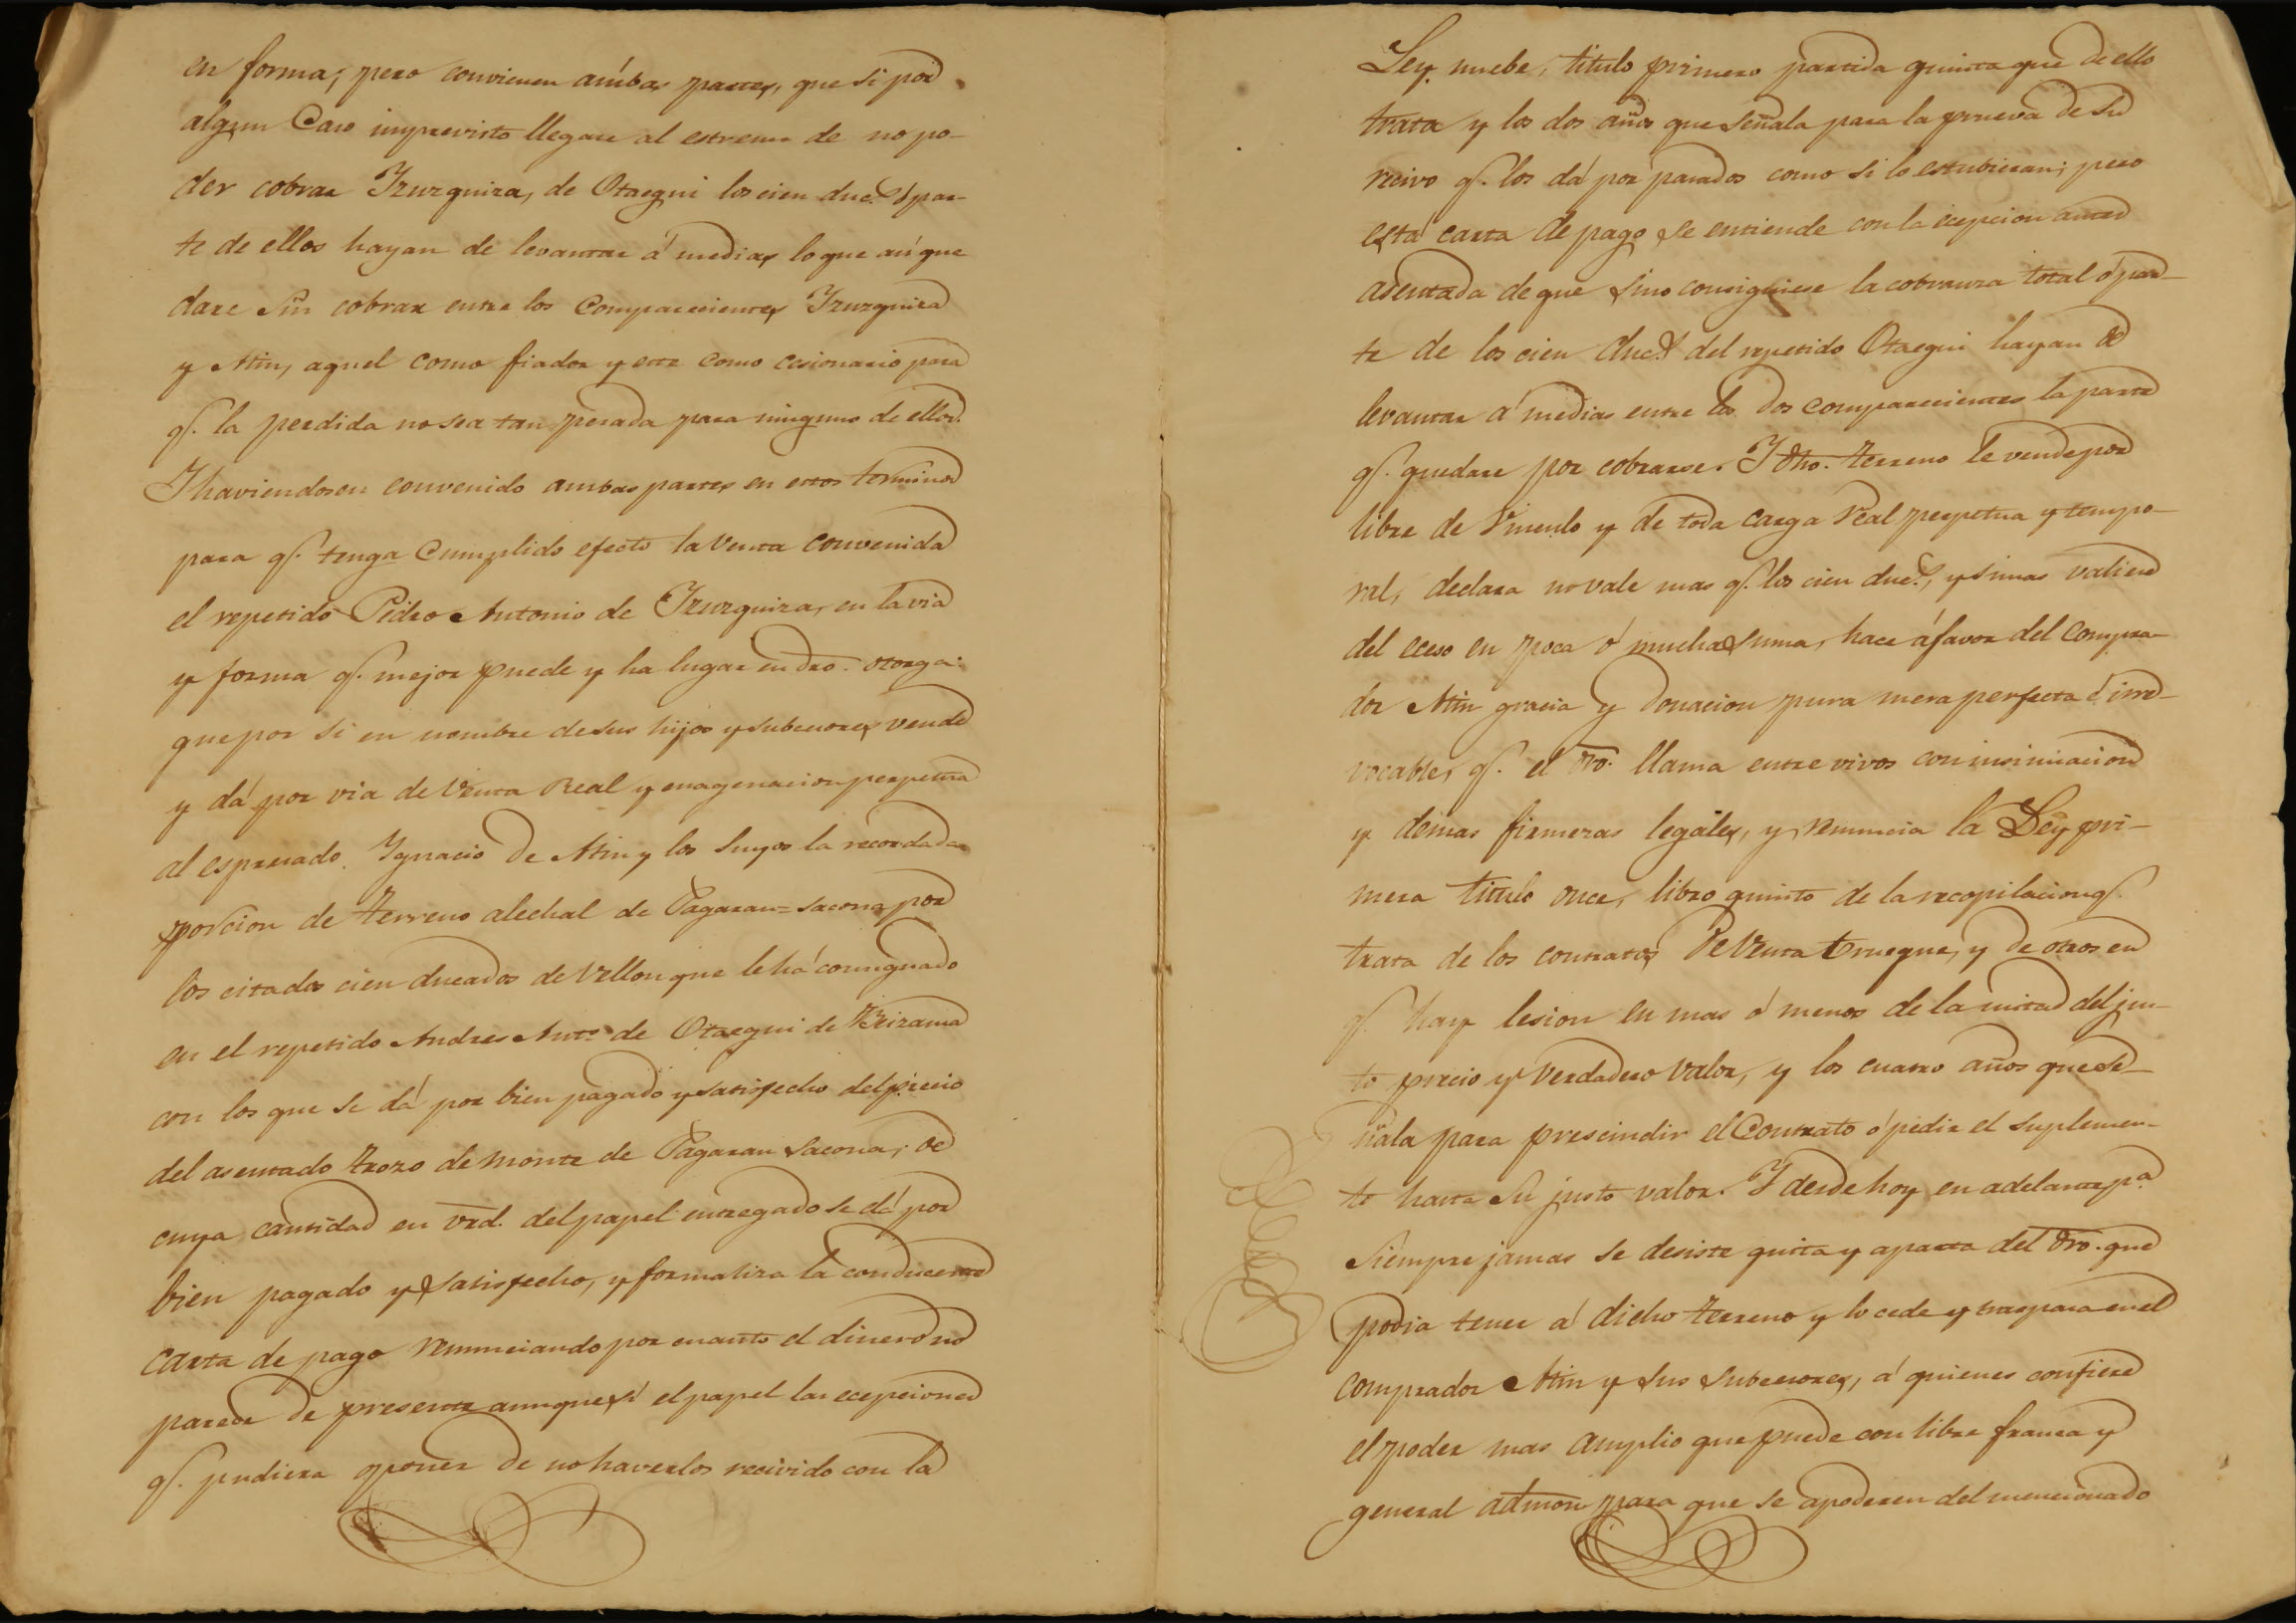 en forma; pero convienen ambas partes, que si por
algun Caso imprevisto llegare al estremo de no po-
der cobrar Yzurquiza, de Otaegui los cien duc.s ó par-
te de ellos hayan de levantar á medias lo que aún que
dare sin cobrar entre los Comparecientes Yzurquiza
y Atin, aquel como fiador y este como cesionario para
q.e la perdida no sea tan pesada para ninguno de ellos.
Y haviendosen convenido ambas partes en estos terminos
para q.e tenga Cumplido efecto la Venta convenida
el repetido Pedro Antonio de Yzurquiza, en la via
y forma q.e mejor puede y ha lugar en dro. otorga:
que por si en nombre de sus hijos y subcesores vende
y dá por via de Venta Real y enagenacion perpetua
al espresado Ygnacio de Atin y los suyos la recordada
porcion de terreno alechal de Pagaran=sacona por
los citados cien ducados de Vellon que le há consignado
en el repetido Andres Ant.o de Otaegui de Beizama
con los que se dá por bien pagado y satisfecho del precio
del asentado trozo de monte de Pagaran sacona; de
cuya cantidad en vrd. del papel entregado se dá por
bien pagado y satisfecho, y formaliza la conducente
carta de pago renunciando por cuanto el dinero no
parece de presente aunque sí el papel las ecepciones
q.e pudiera oponer de no haverlos recivido con la
Ley nuebe, titulo primero partida quinta que de ello
trata y los dos años que señala para la prueva de su
recivo q.e los dá por pasados como si lo estubieran; pero
está carta de pago se entiende con la ecepcion antes
asentada de que sino consiguiese la cobranza total ó par-
te de los cien duc.s del repetido Otaegui hayan de
levantar á medias entre los dos comparecientes la parte
q.e quedare por cobrarse. Y dho. terreno le vende por
libre de Vinculo y de toda carga Real perpetua y tempo-
ral, declara no vale mas q.e los cien duc.s, y si mas valiere
del eceso en poca ó mucha suma, hace á favor del Compra-
dor Atin gracia y donacion pura mera perfecta é irre-
vocable, q.e el dro. llama entre vivos con insinuacion
y demas firmezas legales, y renuncia la Ley pri-
mera titulo once, libro quinto de la recopilacion q.e
trata de los contratos de Venta trueque, y de otros en
q.e hay lesion en mas ó menos de la mitad del jus-
to precio y verdadero valor, y los cuatro años que se-
ñala para prescindir el Contrato ó pedir el suplemen-
to hasta su justo valor. Y desde hoy en adelante p.a
siempre jamas se desiste quita y aparta del dro. que
podia tener á dicho terreno y lo cede y traspasa en el
comprador Atin y sus subcesores, á quienes confiere
el poder mas amplio que puede con libre franca y
general admon para que se apoderen del mencionado